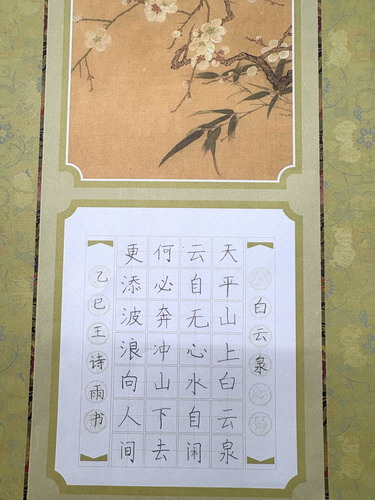 白云泉
天平山上白云泉
云自无心水自闲
何必奔冲山下去
更添波浪向人间
乙巳王诗雨书